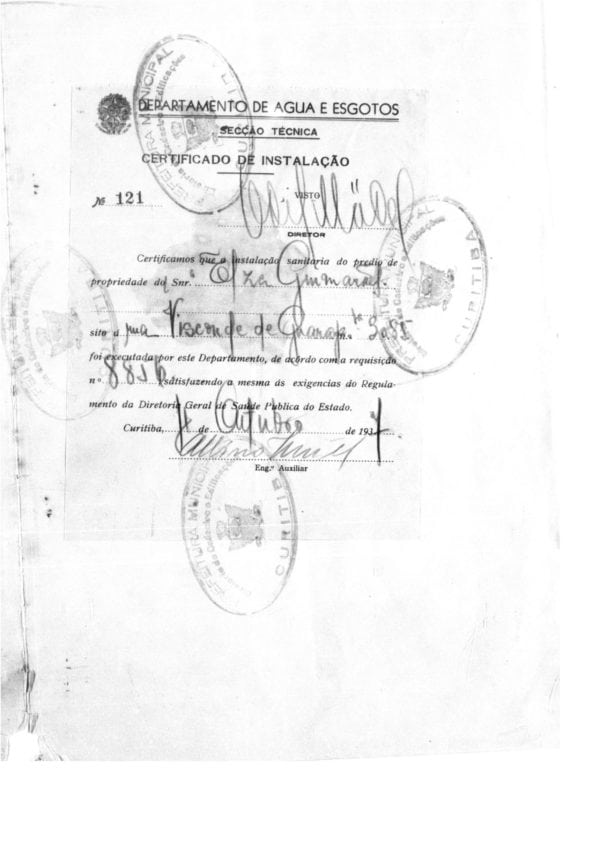 DEPARTAMENTO DE AGUA E ESGOTOS
SECÇÃO TÉCNICA
CERTIFICADO DE INSTALAÇÃO
№ 121
VISTO
DIRETOR
Certificamos que a instalação sanitaria do predio de
propriedade do Snr.ª Elza Guimarães
sito á rua Visconde de Guarap. n.º 3055
foi executada por este Departamento, de acôrdo com a requisição
n.º 8816 satisfazendo a mesma ás exigencias do Regula-
mento da Diretoria Geral de Saúde Publica do Estado.
Curitiba, de Outubro de 1937
Eng.º Auxiliar
PREFEITURA MUNICIPAL
CURITIBA
Diretoria de Cadastro e Edificações
PREFEITURA MUNICIPAL
CURITIBA
PREFEITURA MUNICIPAL
CURITIBA
Diretoria de Cadastro e Edificações